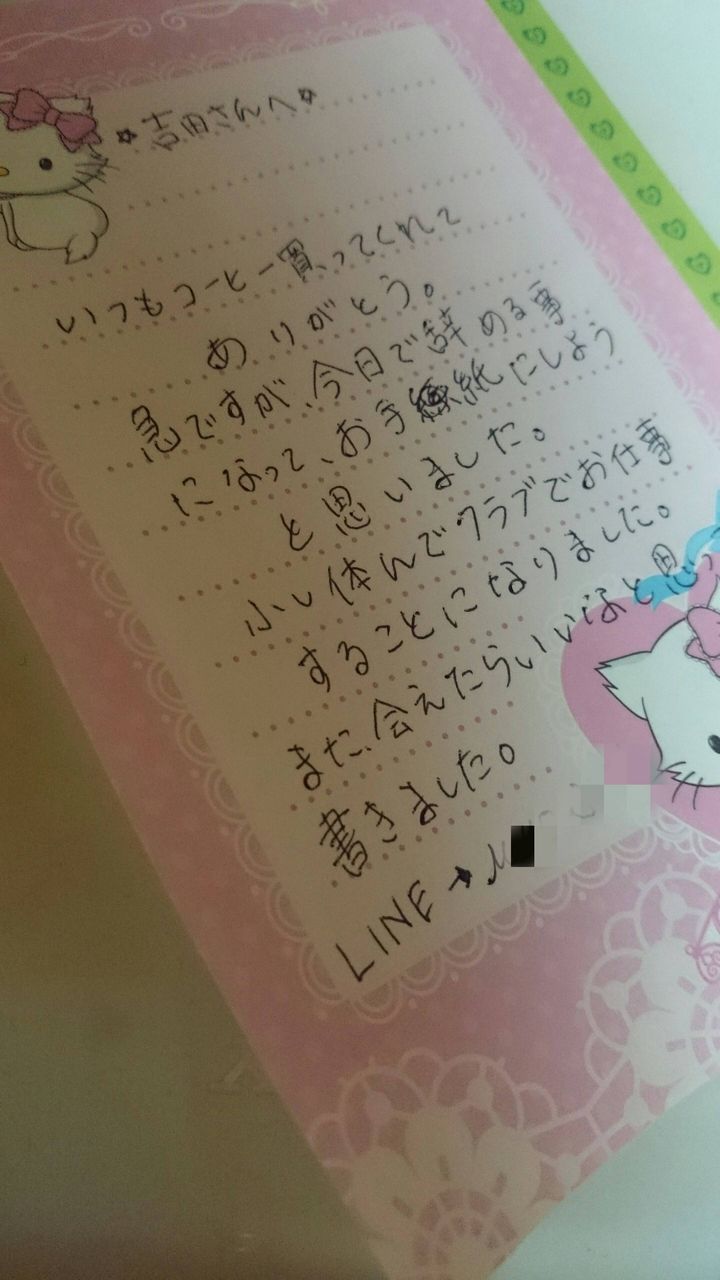 ☆吉田さんへ☆
いつもコーヒー買ってくれて
ありがとう。
急ですが、今日で辞める事
になって、お手紙にしよう
と思いました。
少し休んでクラブでお仕事
することになりました。
また、会えたらいいなと思い
書きました。
LINE→M